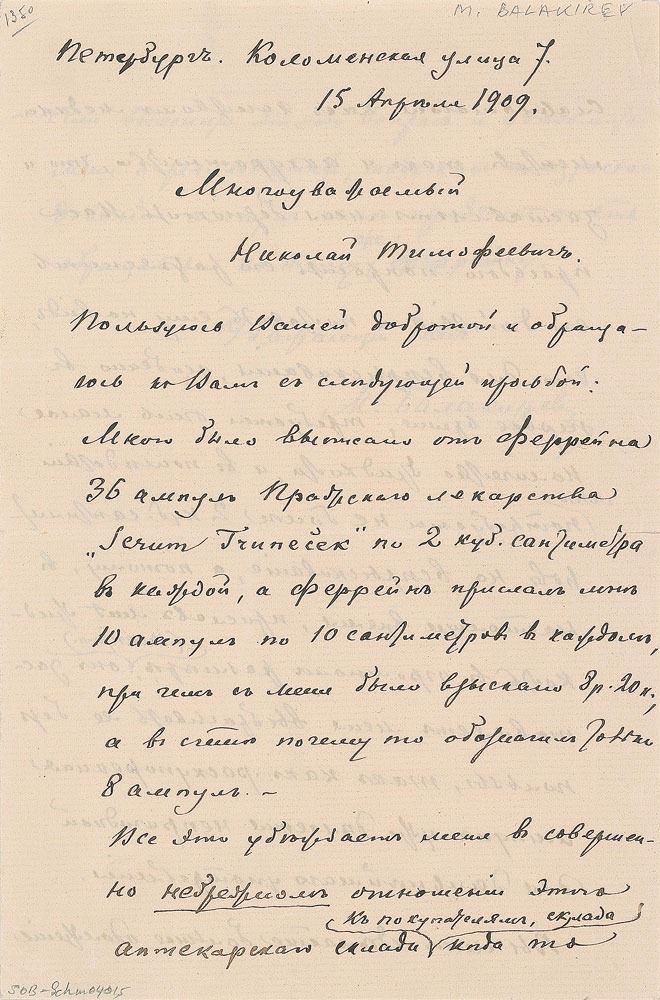 1350
M. BALAKIREV
Петербургъ. Коломенская улица 7.
15 Апрѣля 1909.
Многоуважаемый
Николай Тимофеевичъ.
Пользуюсь Вашей добротой и обраща-
юсь къ Вамъ съ слѣдующей просьбой:
Мною было выписано отъ Феррейна
36 ампулъ Пражскаго лекарства
по 2 куб. сантиметра
въ каждой, а Феррейнъ прислалъ мнѣ
10 ампулъ по 10 сантиметровъ въ каждомъ,
при чемъ съ меня было взыскано 3р. 20к.,
а въ счетѣ почему то обозначилъ только
8 ампулъ. –
Все это убѣждаетъ меня въ совершен-
но небрежномъ отношеніи этого
къ покупателямъ, склада
аптекарскаго склада когда то
SOB-Schm04015